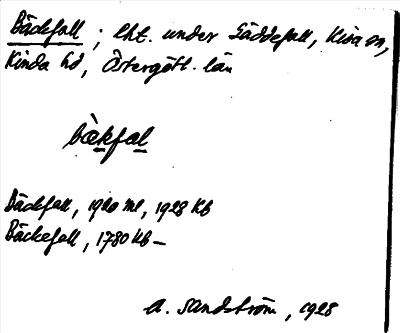 Bäckfall ; lht. under Gäddefall, Kisa sn,
Kinda hd, Östergötl. län
bäkfal
Bäckfall, 1920 ml, 1928 Kb
Bäckefall, 1780 Kb –
A. Sandström, 1928